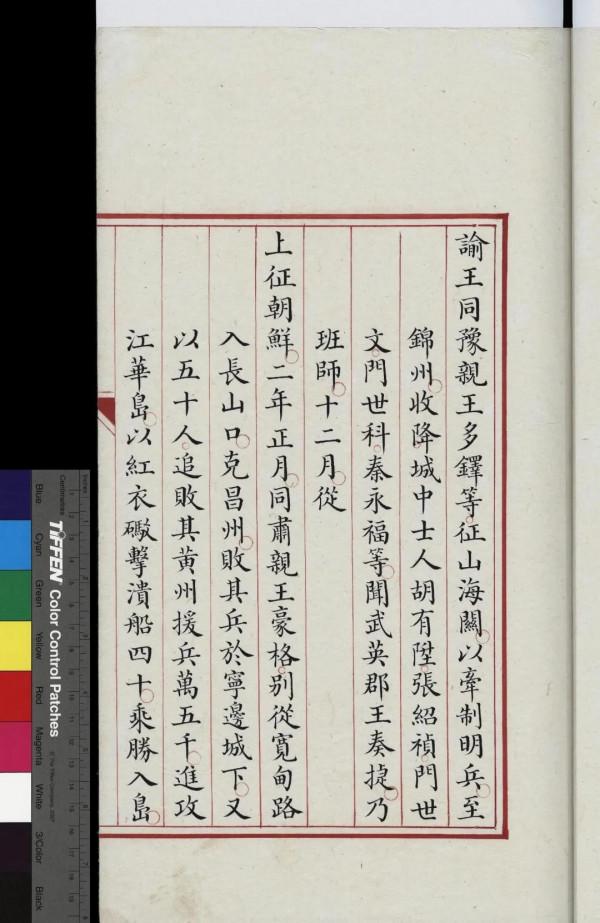 諭王同豫親王多鐸等征山海關以牽制明兵至
錦州收降城中士人胡有陞張紹禎門世
文門世科秦永福等聞武英郡王奏捷乃
班師十二月從
上征朝鮮二年正月同肅親王豪格別從寬甸路
入長山口克昌州敗其兵於寧邊城下又
以五十人追敗其黃州援兵萬五千進攻
江華島以紅衣礮擊潰船四十乘勝入島
TIFFEN Color Control Patches
Centimetres
Inches
Blue
Cyan
Green
Yellow
Red
Magenta
White
3/Color
Black